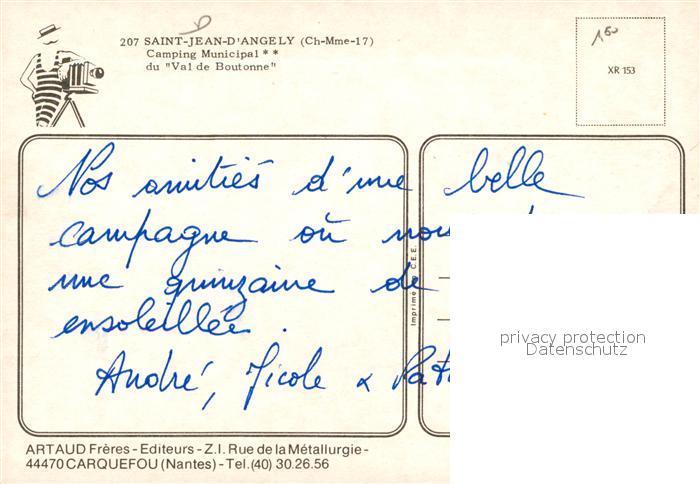 207 SAINT-JEAN-D'ANGELY (Ch-Mme-17)
Camping Municipal **
du "Val de Boutonne"
150
XR 153
Nos amitiés d'une belle
campagne où nou
une quinzaine de
ensoleillée.
André, Nicole & Pat
Imprimé C.E.E.
privacy protection
Datenschutz
ARTAUD Frères - Editeurs - Z.I. Rue de la Métallurgie -
44470 CARQUEFOU (Nantes) - Tel. (40) 30.26.56